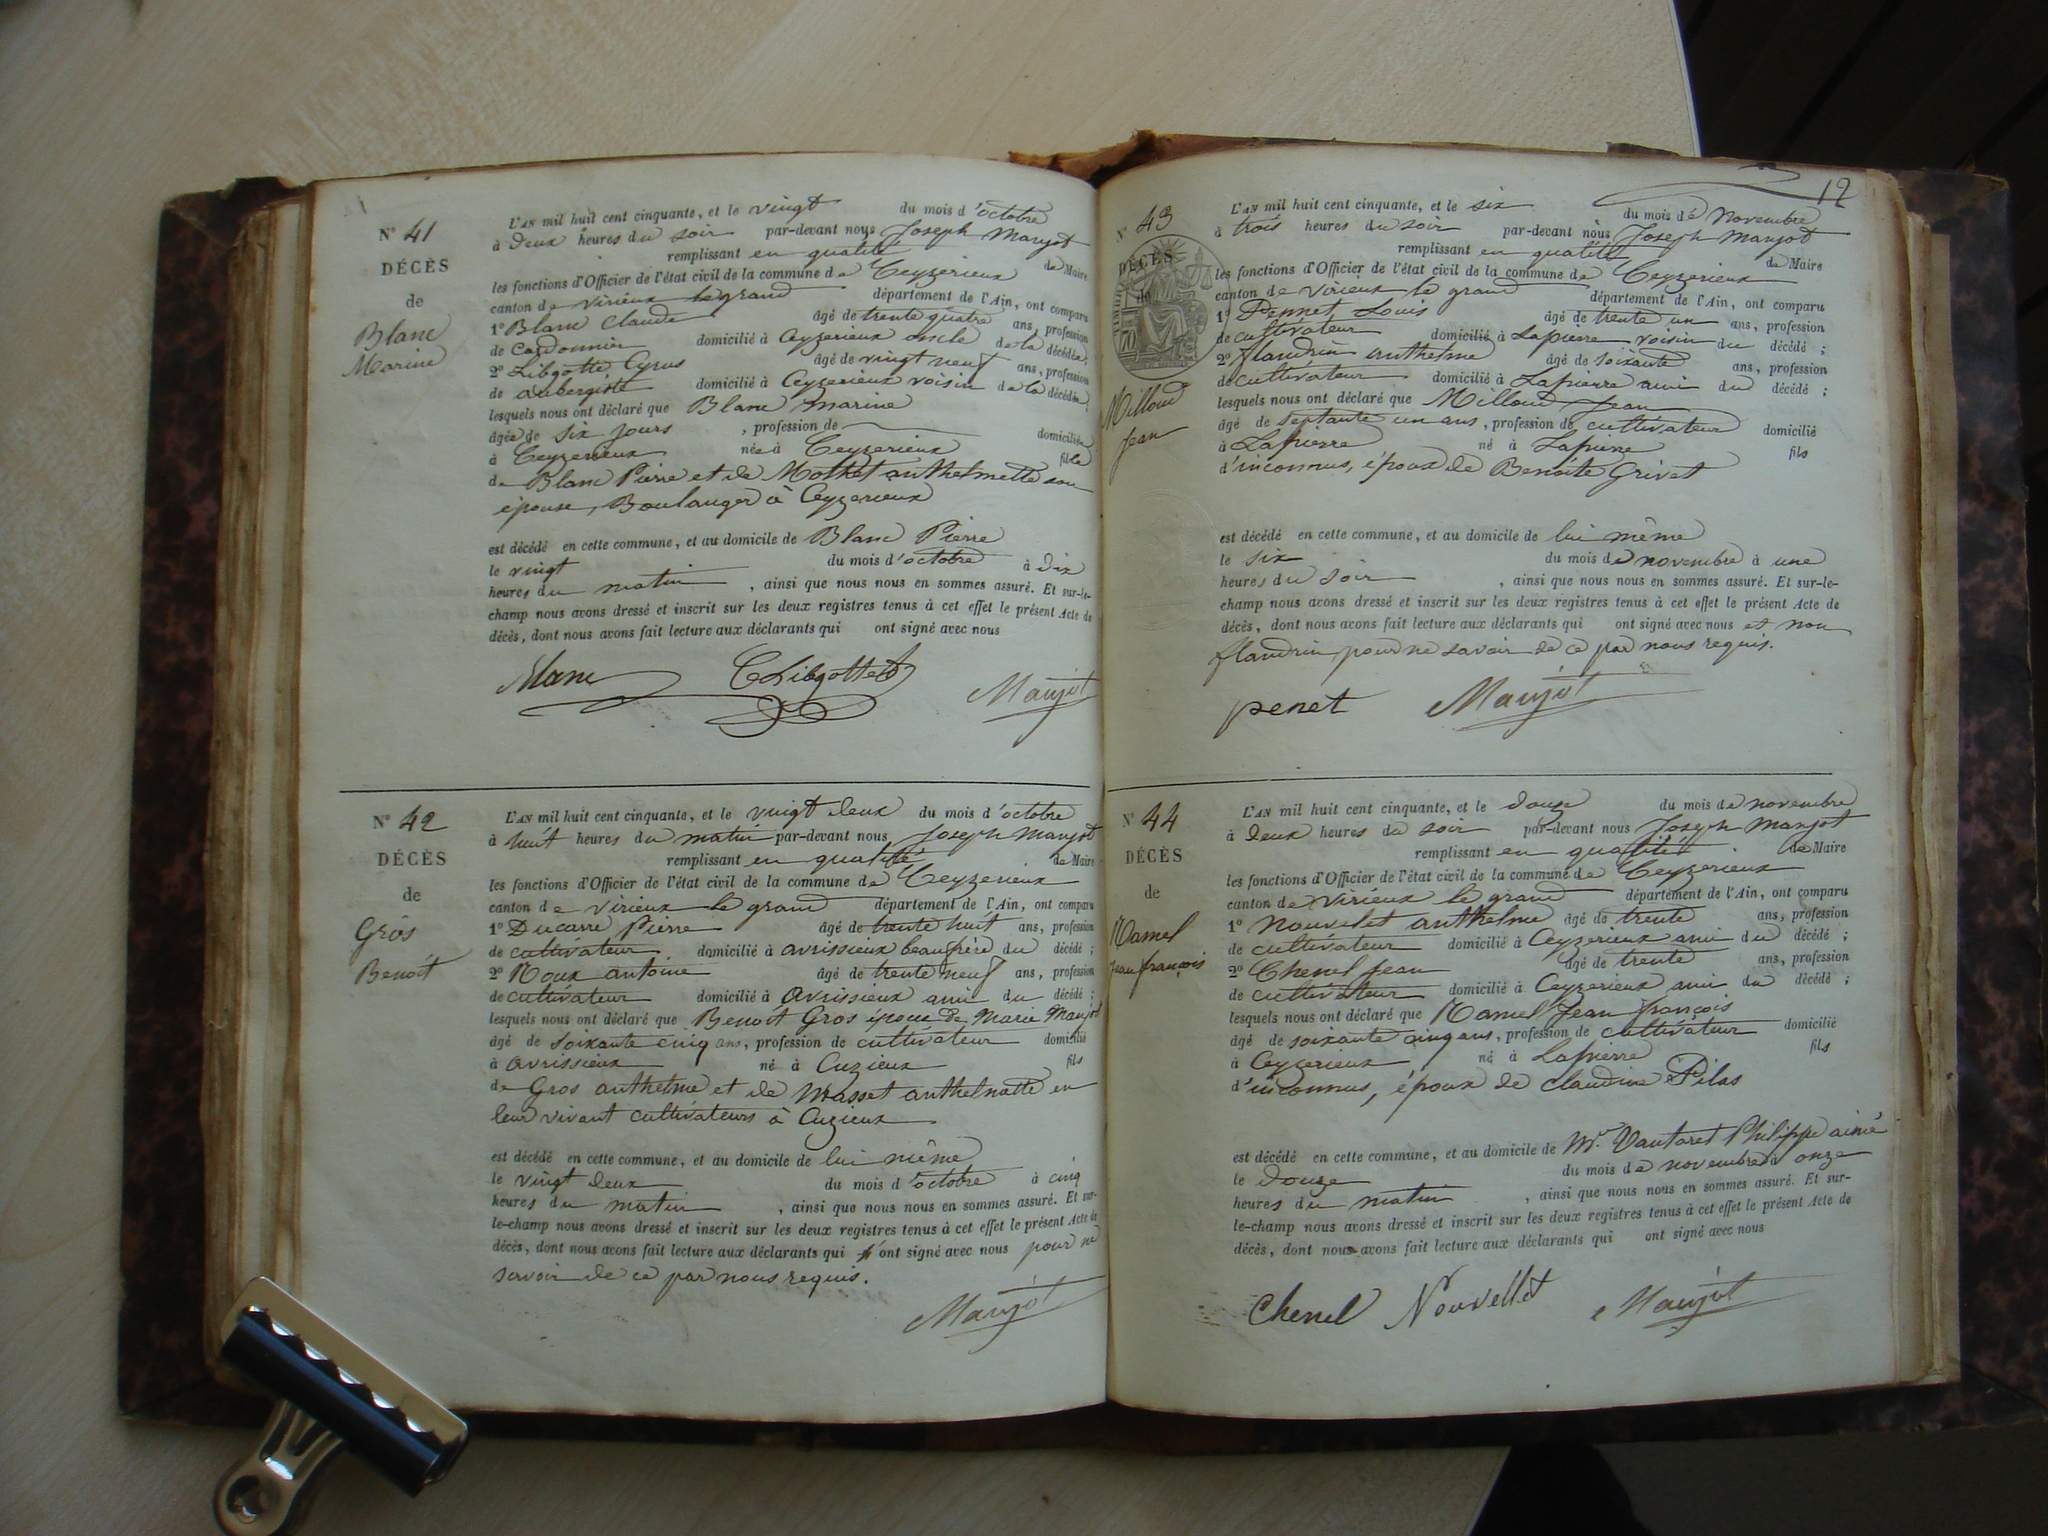 N° 41
DÉCÈS
de
Blanc
Marine
L'AN mil huit cent cinquante, et le vingt du mois d'octobre
à deux heures du soir par-devant nous Joseph Maujot
remplissant en qualité de Maire
les fonctions d'Officier de l'état civil de la commune de Ceyzerieux
canton de virieux le grand département de l'Ain, ont comparu
1° Blanc Claude âgé de trente quatre ans, profession
de Cordonnier domicilié à Ceyzerieux oncle de la décédée;
2° Libgotte Cyrus âgé de vingt neuf ans, profession
de aubergiste domicilié à Ceyzerieux voisin de la décédée;
lesquels nous ont déclaré que Blanc marine
âgée de six jours, profession de domiciliée
à Ceyzerieux née à Ceyzerieux fille
de Blanc Pierre et de Mothet anthelmette son
épouse, Boulanger à Ceyzerieux
est décédé en cette commune, et au domicile de Blanc Pierre
le vingt du mois d'octobre à dix
heures du matin, ainsi que nous nous en sommes assuré. Et sur-le-
champ nous avons dressé et inscrit sur les deux registres tenus à cet effet le présent Acte de
décès, dont nous avons fait lecture aux déclarants qui ont signé avec nous
Blanc CLibgotte Maujot
N° 42
DÉCÈS
de
Grôs
Benoît
L'AN mil huit cent cinquante, et le vingt deux du mois d'octobre
à huit heures du matin par-devant nous Joseph Maujot
remplissant en qualité de Maire
les fonctions d'Officier de l'état civil de la commune de Ceyzerieux
canton de virieux le grand département de l'Ain, ont comparu
1° Ducarre Pierre âgé de trente huit ans, profession
de cultivateur domicilié à avrissieux beaufrère du décédé;
2° Roux antoine âgé de trente neuf ans, profession
de cultivateur domicilié à avrissieux ami du décédé;
lesquels nous ont déclaré que Benoît Gros époux de Marie Maujot
âgé de soixante cinq ans, profession de cultivateur domicilié
à avrissieux né à Cuzieux fils
de Gros anthelme et de Masset anthelmette en
leur vivant cultivateurs à Cuzieux
est décédé en cette commune, et au domicile de lui même
le vingt deux du mois d'octobre à cinq
heures du matin, ainsi que nous nous en sommes assuré. Et sur-
le-champ nous avons dressé et inscrit sur les deux registres tenus à cet effet le présent Acte de
décès, dont nous avons fait lecture aux déclarants qui n'ont signé avec nous pour ne
savoir de ce par nous requis.
Maujot
12
N° 43
DÉCÈS
de
Milloud
Jean
L'AN mil huit cent cinquante, et le six du mois de novembre
à trois heures du soir par-devant nous Joseph Maujot
remplissant en qualité de Maire
les fonctions d'Officier de l'état civil de la commune de Ceyzerieux
canton de virieux le grand département de l'Ain, ont comparu
1° Pennet Louis âgé de trente un ans, profession
de cultivateur domicilié à Lapierre voisin du décédé;
2° flandrin anthelme âgé de soixante ans, profession
de cultivateur domicilié à Lapierre ami du décédé;
lesquels nous ont déclaré que Milloud Jean
âgé de septante un ans, profession de cultivateur domicilié
à Lapierre né à Lapierre fils
d'inconnus, époux de Benoite Grivet
est décédé en cette commune, et au domicile de lui même
le six du mois de novembre à une
heures du soir, ainsi que nous nous en sommes assuré. Et sur-le-
champ nous avons dressé et inscrit sur les deux registres tenus à cet effet le présent Acte de
décès, dont nous avons fait lecture aux déclarants qui ont signé avec nous et non
flandrin, pour ne savoir de ce par nous requis.
penet Maujot
N° 44
DÉCÈS
de
Ramel
Jean françois
L'AN mil huit cent cinquante, et le douze du mois de novembre
à deux heures du soir par-devant nous Joseph Maujot
remplissant en qualité de Maire
les fonctions d'Officier de l'état civil de la commune de Ceyzerieux
canton de virieux le grand département de l'Ain, ont comparu
1° Nouvelet anthelme âgé de trente ans, profession
de cultivateur domicilié à Ceyzerieux ami du décédé;
2° Chenel Jean âgé de trente ans, profession
de cultivateur domicilié à Ceyzerieux ami du décédé;
lesquels nous ont déclaré que Ramel Jean françois
âgé de soixante cinq ans, profession de cultivateur domicilié
à Ceyzerieux né à Lapierre fils
d'inconnus, époux de Claudine Pilas
est décédé en cette commune, et au domicile de Mr. Vautaret Philippe aimé
le douze du mois de novembre à onze
heures du matin, ainsi que nous nous en sommes assuré. Et sur-
le-champ nous avons dressé et inscrit sur les deux registres tenus à cet effet le présent Acte de
décès, dont nous avons fait lecture aux déclarants qui ont signé avec nous
Chenel Nouvellet Maujot